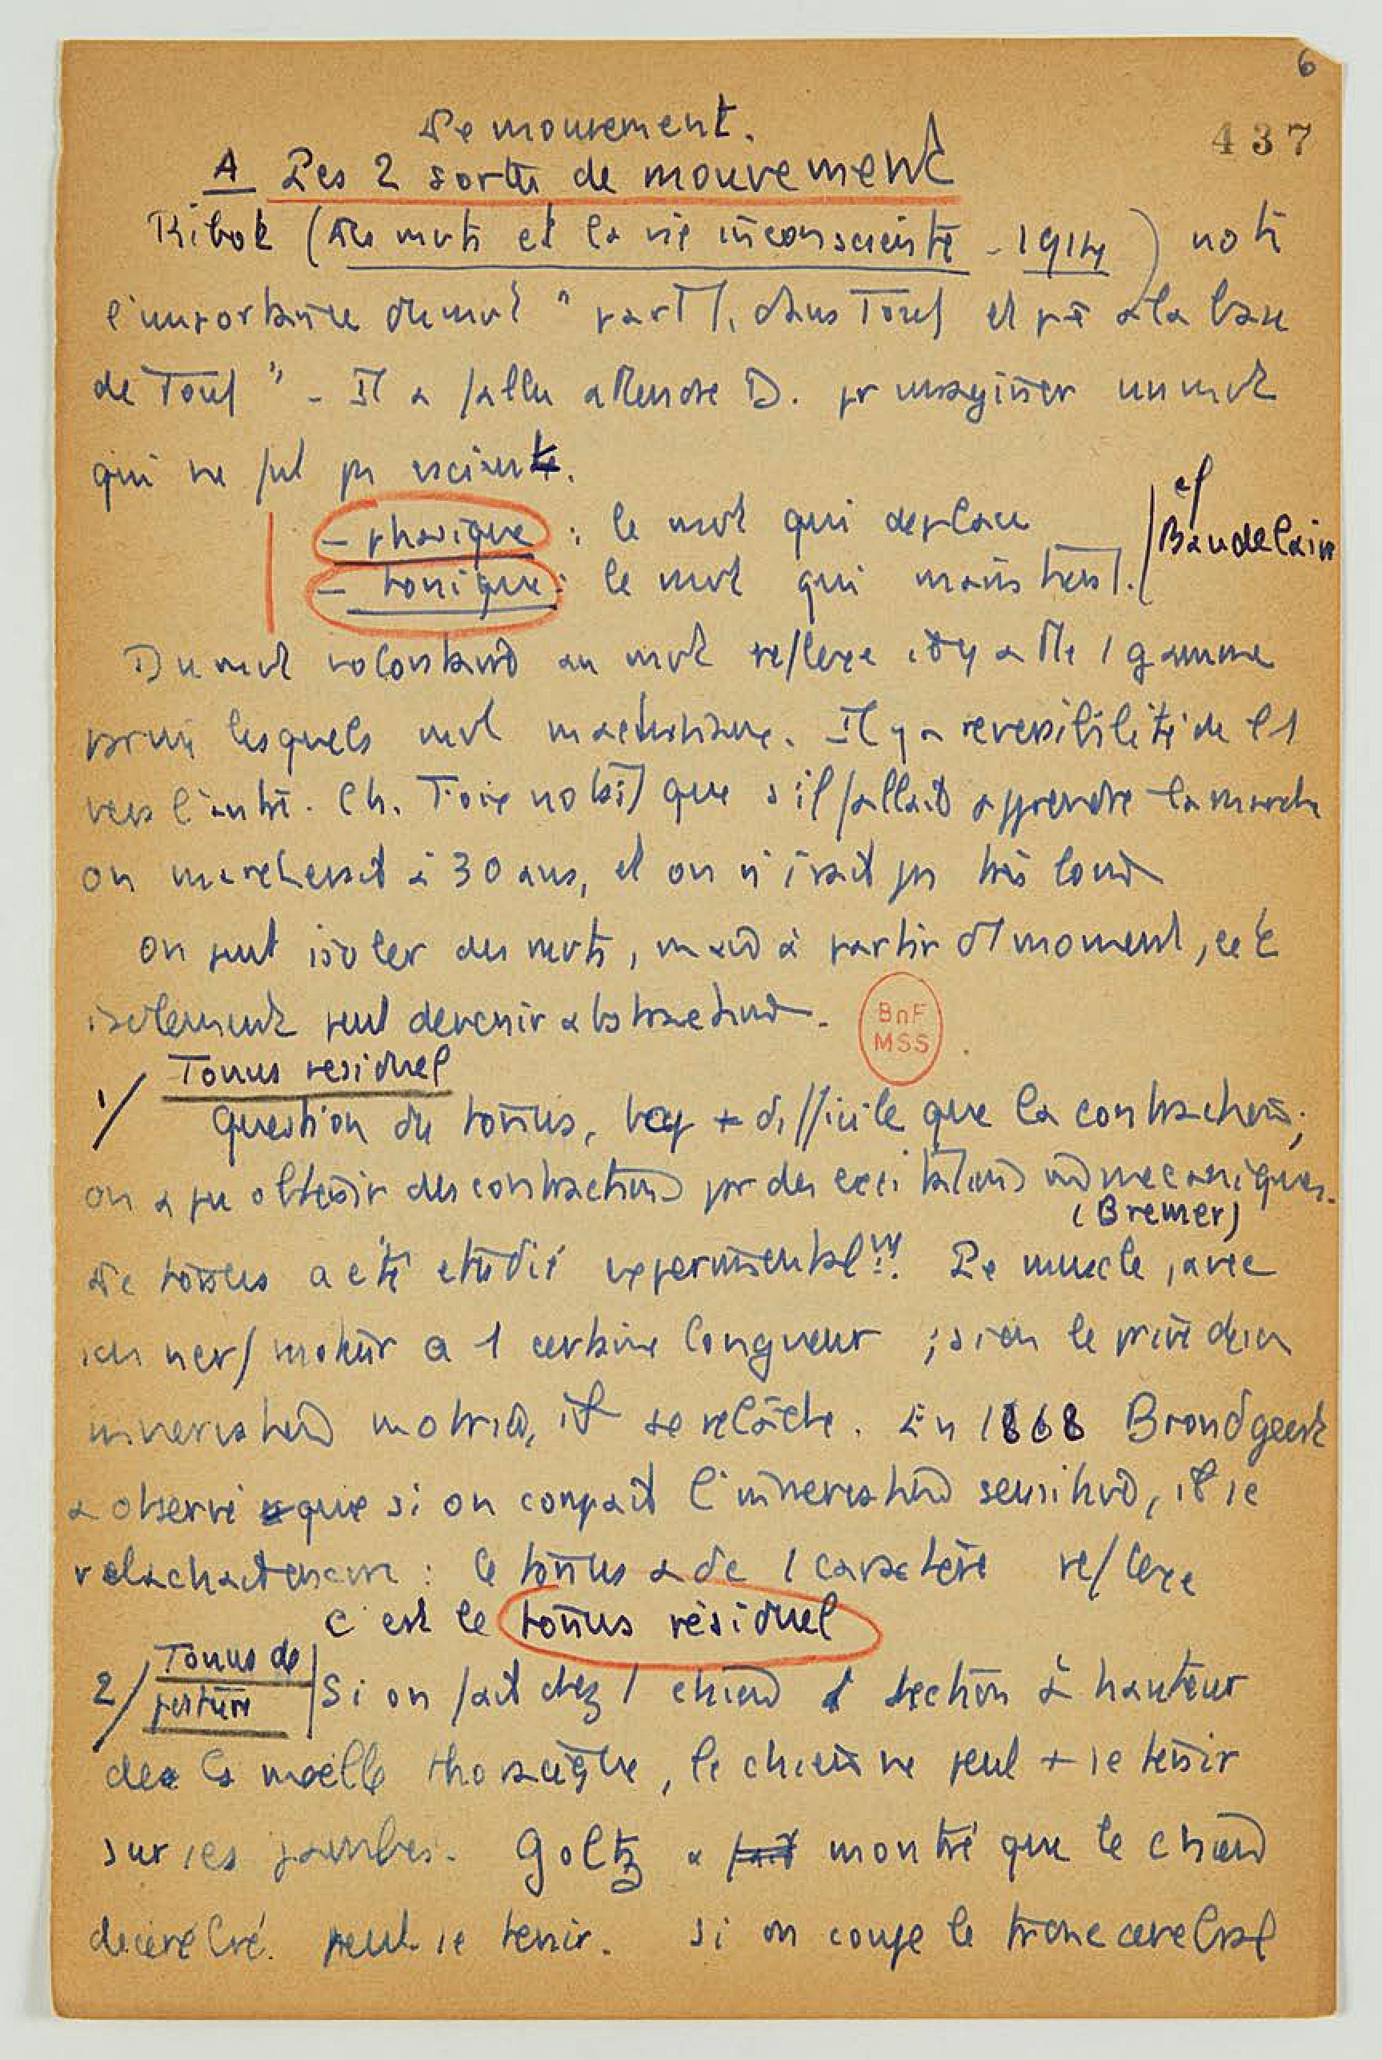 6
437
Le mouvement.
A Les 2 sortes de mouvement
Ribot (Les mvts et la vie inconsciente - 1914) note
l'importance du mvt " partt, dans tout et pê à la base
de tout " - Il a fallu attendre D. pr imaginer un mvt
qui ne fut pas
- phasique : le mvt qui deplace
- tonique : le mvt qui maintient.
cf
Baudelaire
Du mvt volontaire au mvt reflexe il y a tte 1 gamme
parmi lesquels mvt Il y a reversibilité de l'1
vers l'autre. Ch. notait que s'il fallait apprendre la marche
on marcherait à 30 ans, et on n'irait pas très loin
on peut isoler des mvts, mais à partir d'1 moment, cet
isolement peut devenir abstraction.
BnF
MSS
1/ Tonus residuel
Question du tonus, bcp + difficile que la contraction;
on a pu obtenir des contractions par des excitations mecaniques.
(Bremer)
Le tonus a été etudié experimentalt!!! Le muscle, avec
son nerf moteur a 1 certaine longueur ; si on le prive de son
innervation motrice, il se relâche. En 1868 Brondgeest
a observé que si on coupait l'innervation sensitive, il se
relachait encore : le tonus a dc 1 caractère reflexe
c'est le tonus résiduel
2/ Tonus de
posture
Si on fait chez 1 chien 1 section à hauteur
de la moëlle thoracique, le chien ne peut + se tenir
sur ses jambes. Goltz a fait montré que le chien
decerebré peut se tenir. Si on coupe le tronc cerebral